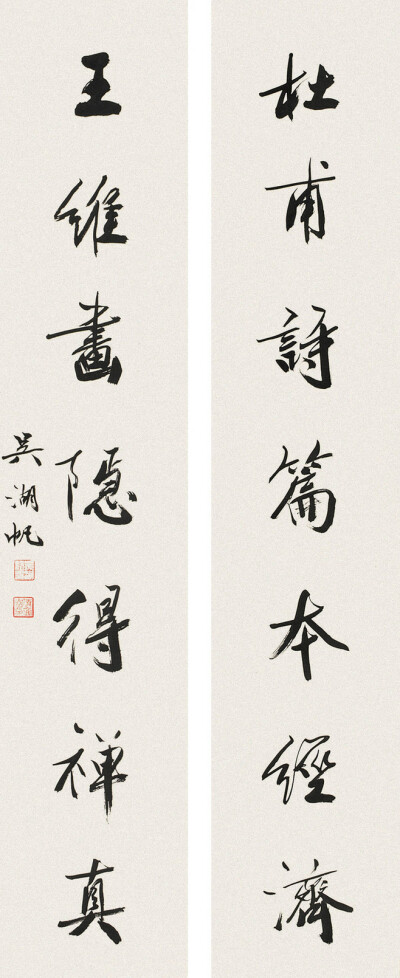 杜甫詩篇本經濟
王維畫隠得禅真
吳湖帆